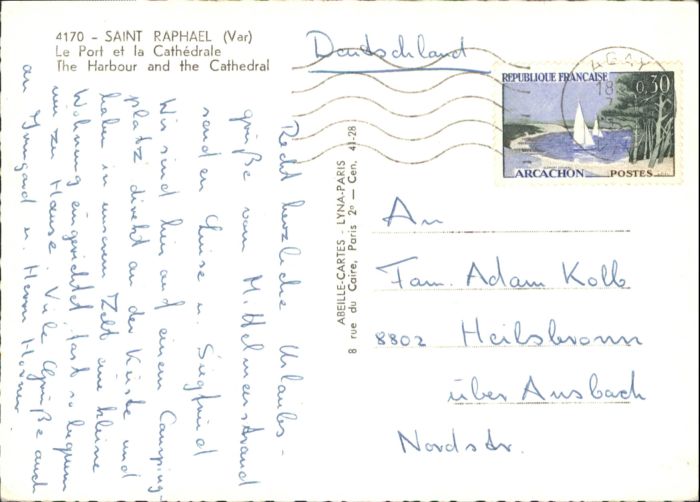 4170 - SAINT RAPHAEL (Var)
Le Port et la Cathédrale
The Harbour and the Cathedral
Deutschland
REPUBLIQUE FRANÇAISE
0,30
18
ARCACHON
POSTES
Recht herzliche Urlaubs-
grüße vom Mittelmeerstrand
senden Luise u. Siegfried
Wir sind hier auf einem Camping-
platz direkt an der Küste und
haben in unserem Zelt eine kleine
Wohnung eingerichtet, fast so bequem
wie zu Hause. Viele Grüße auch
an Irmgard u. Herrn Horner.
ABEILLE-CARTES - LYNA-PARIS
8 rue du Caire, Paris 2º — Cen. 41-28
An
Fam. Adam Kolb
8802 Heilsbronn
über Ansbach
Nordstr.